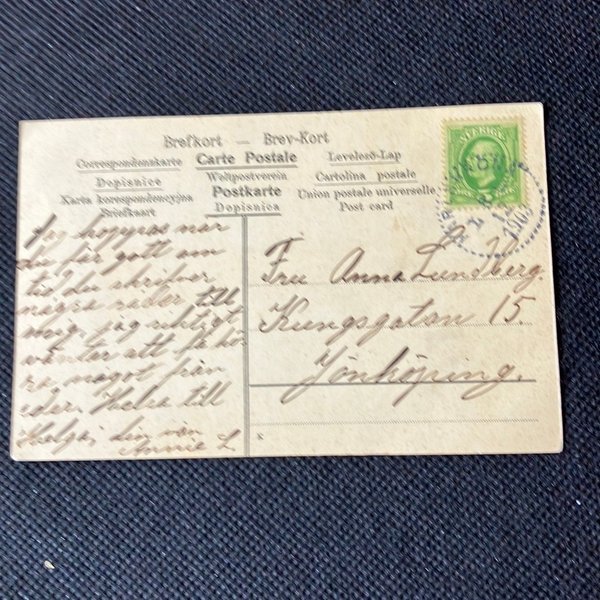 Brefkort — Brev-Kort
Correspondenskarte Carte Postale Levelező-Lap
Dopisnice Weltpostverein Cartolina postale
Karta korespondencyjna Postkarte Union postale universelle
Briefkaart Dopisnica Post card
SVERIGE
när
du får godt om
tid du skrifver
några rader till
mig, jag riktigt
väntar att få hö-
ra något från
eder. Helsa till
Helga, din vän
Annie L
Fru Anna Lundberg.
Kungsgatan 15.
Jönköping.